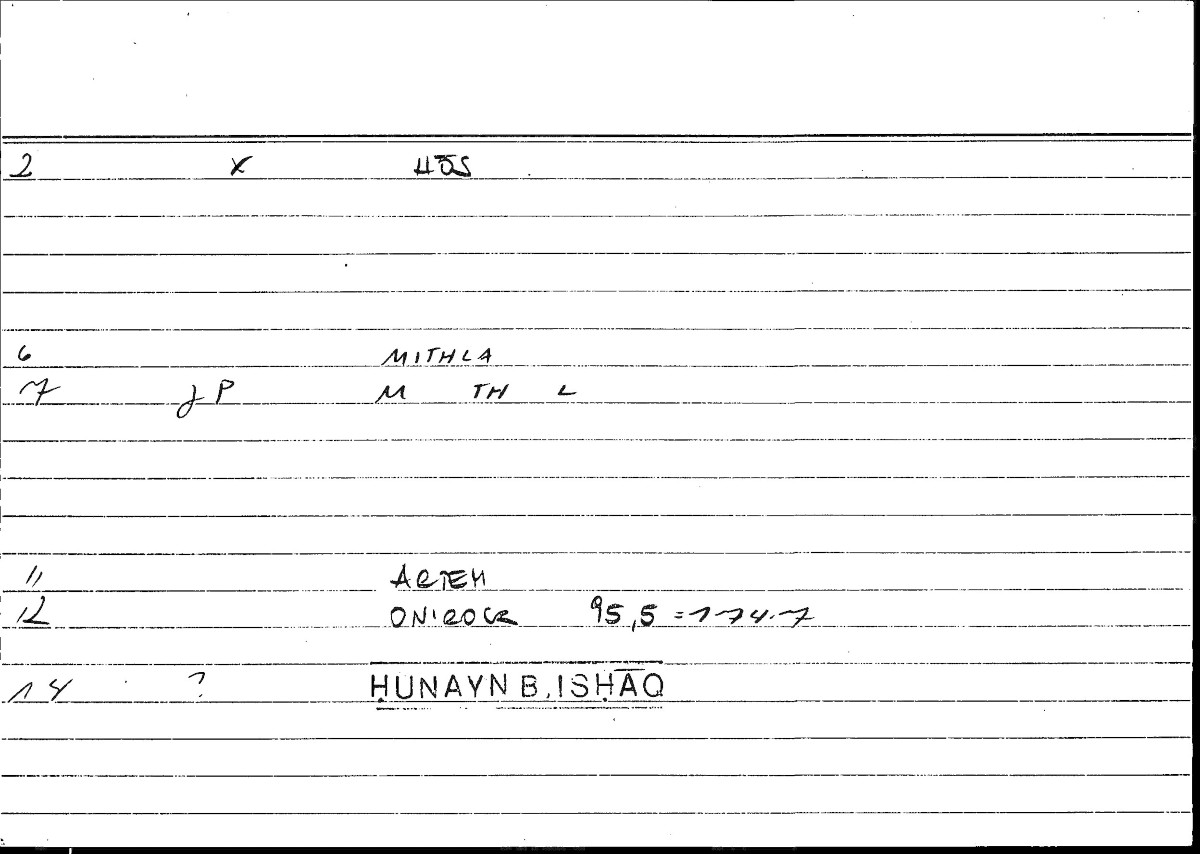 2 x ὡς
6 MITHLA
7 J P M TH L
11 ARTEM
12 ONIROCR 95,5 = 174.7
14 ? ḤUNAYN B. ISḤĀQ